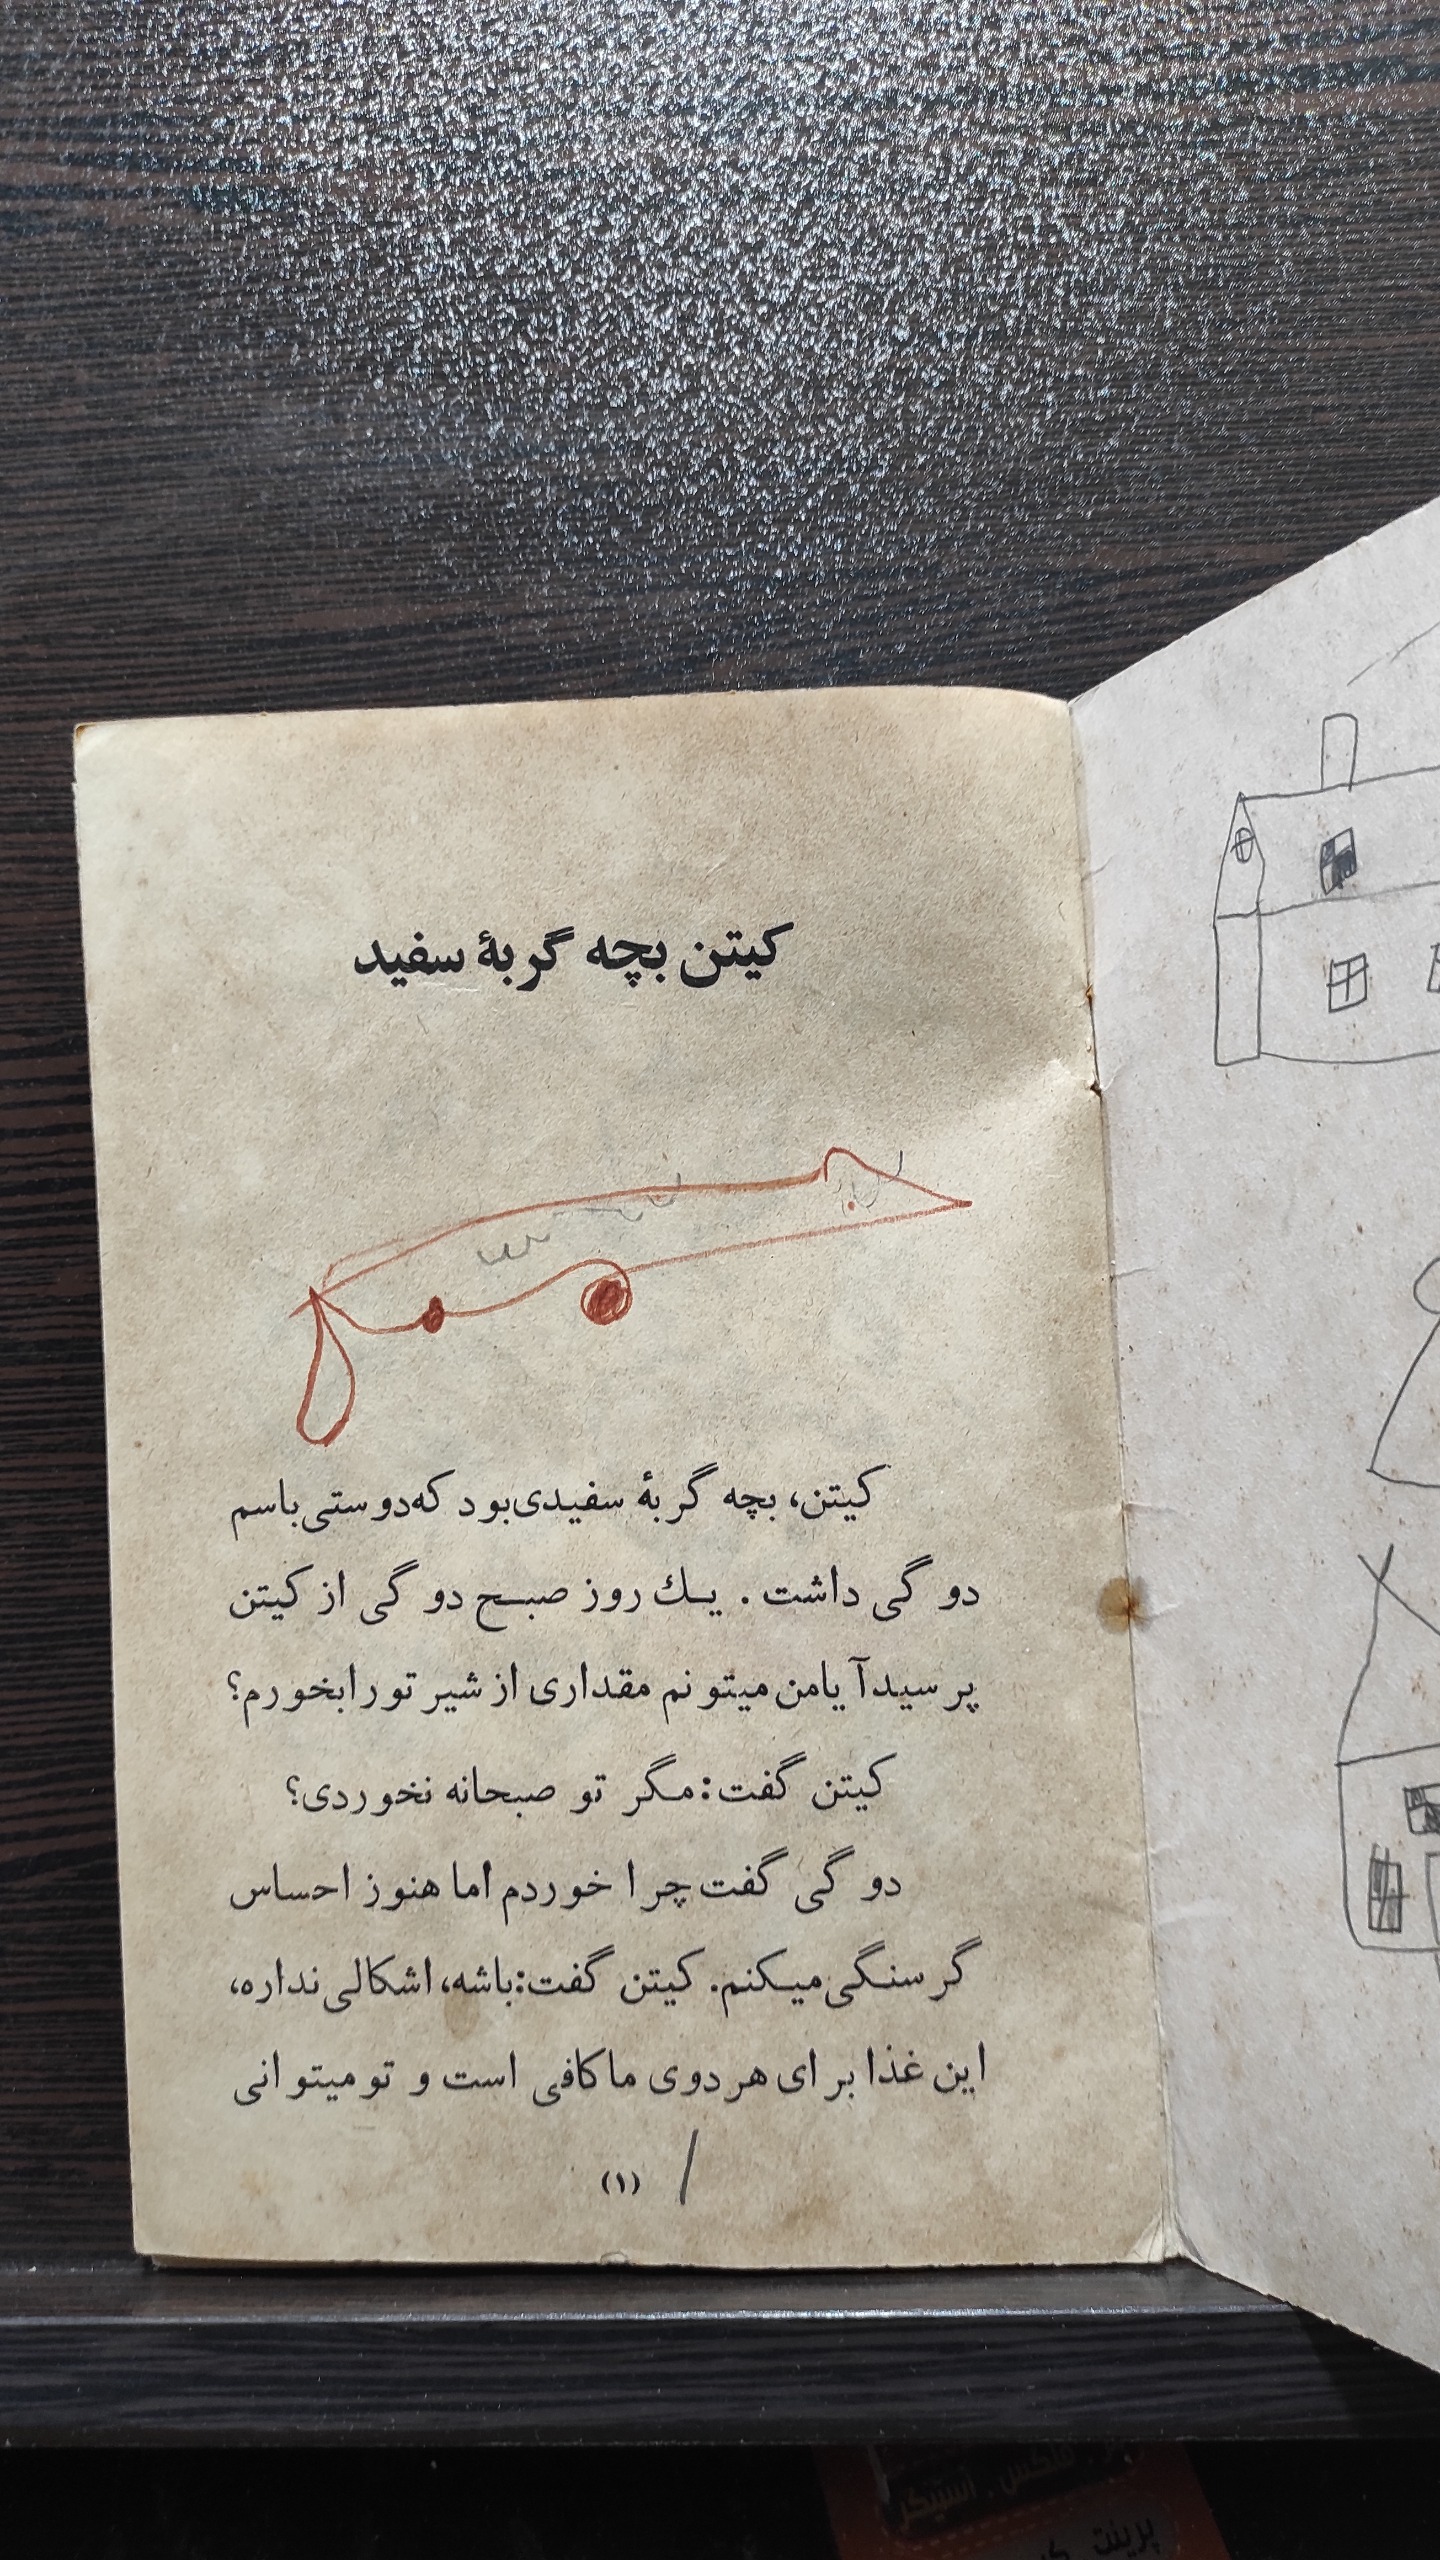 کیتن بچه گربهٔ سفید
کیتن، بچه گربهٔ سفیدی بود که دوستی باسم
دوگی داشت. یک روز صبح دوگی از کیتن
پرسید آیا من میتونم مقداری از شیر تو را بخورم؟
کیتن گفت: مگر تو صبحانه نخوردی؟
دوگی گفت چرا خوردم اما هنوز احساس
گرسنگی میکنم. کیتن گفت: باشه، اشکالی نداره،
این غذا برای هر دوی ما کافی است و تو میتوانی
(۱)
فلکس . استیکر
پرینت